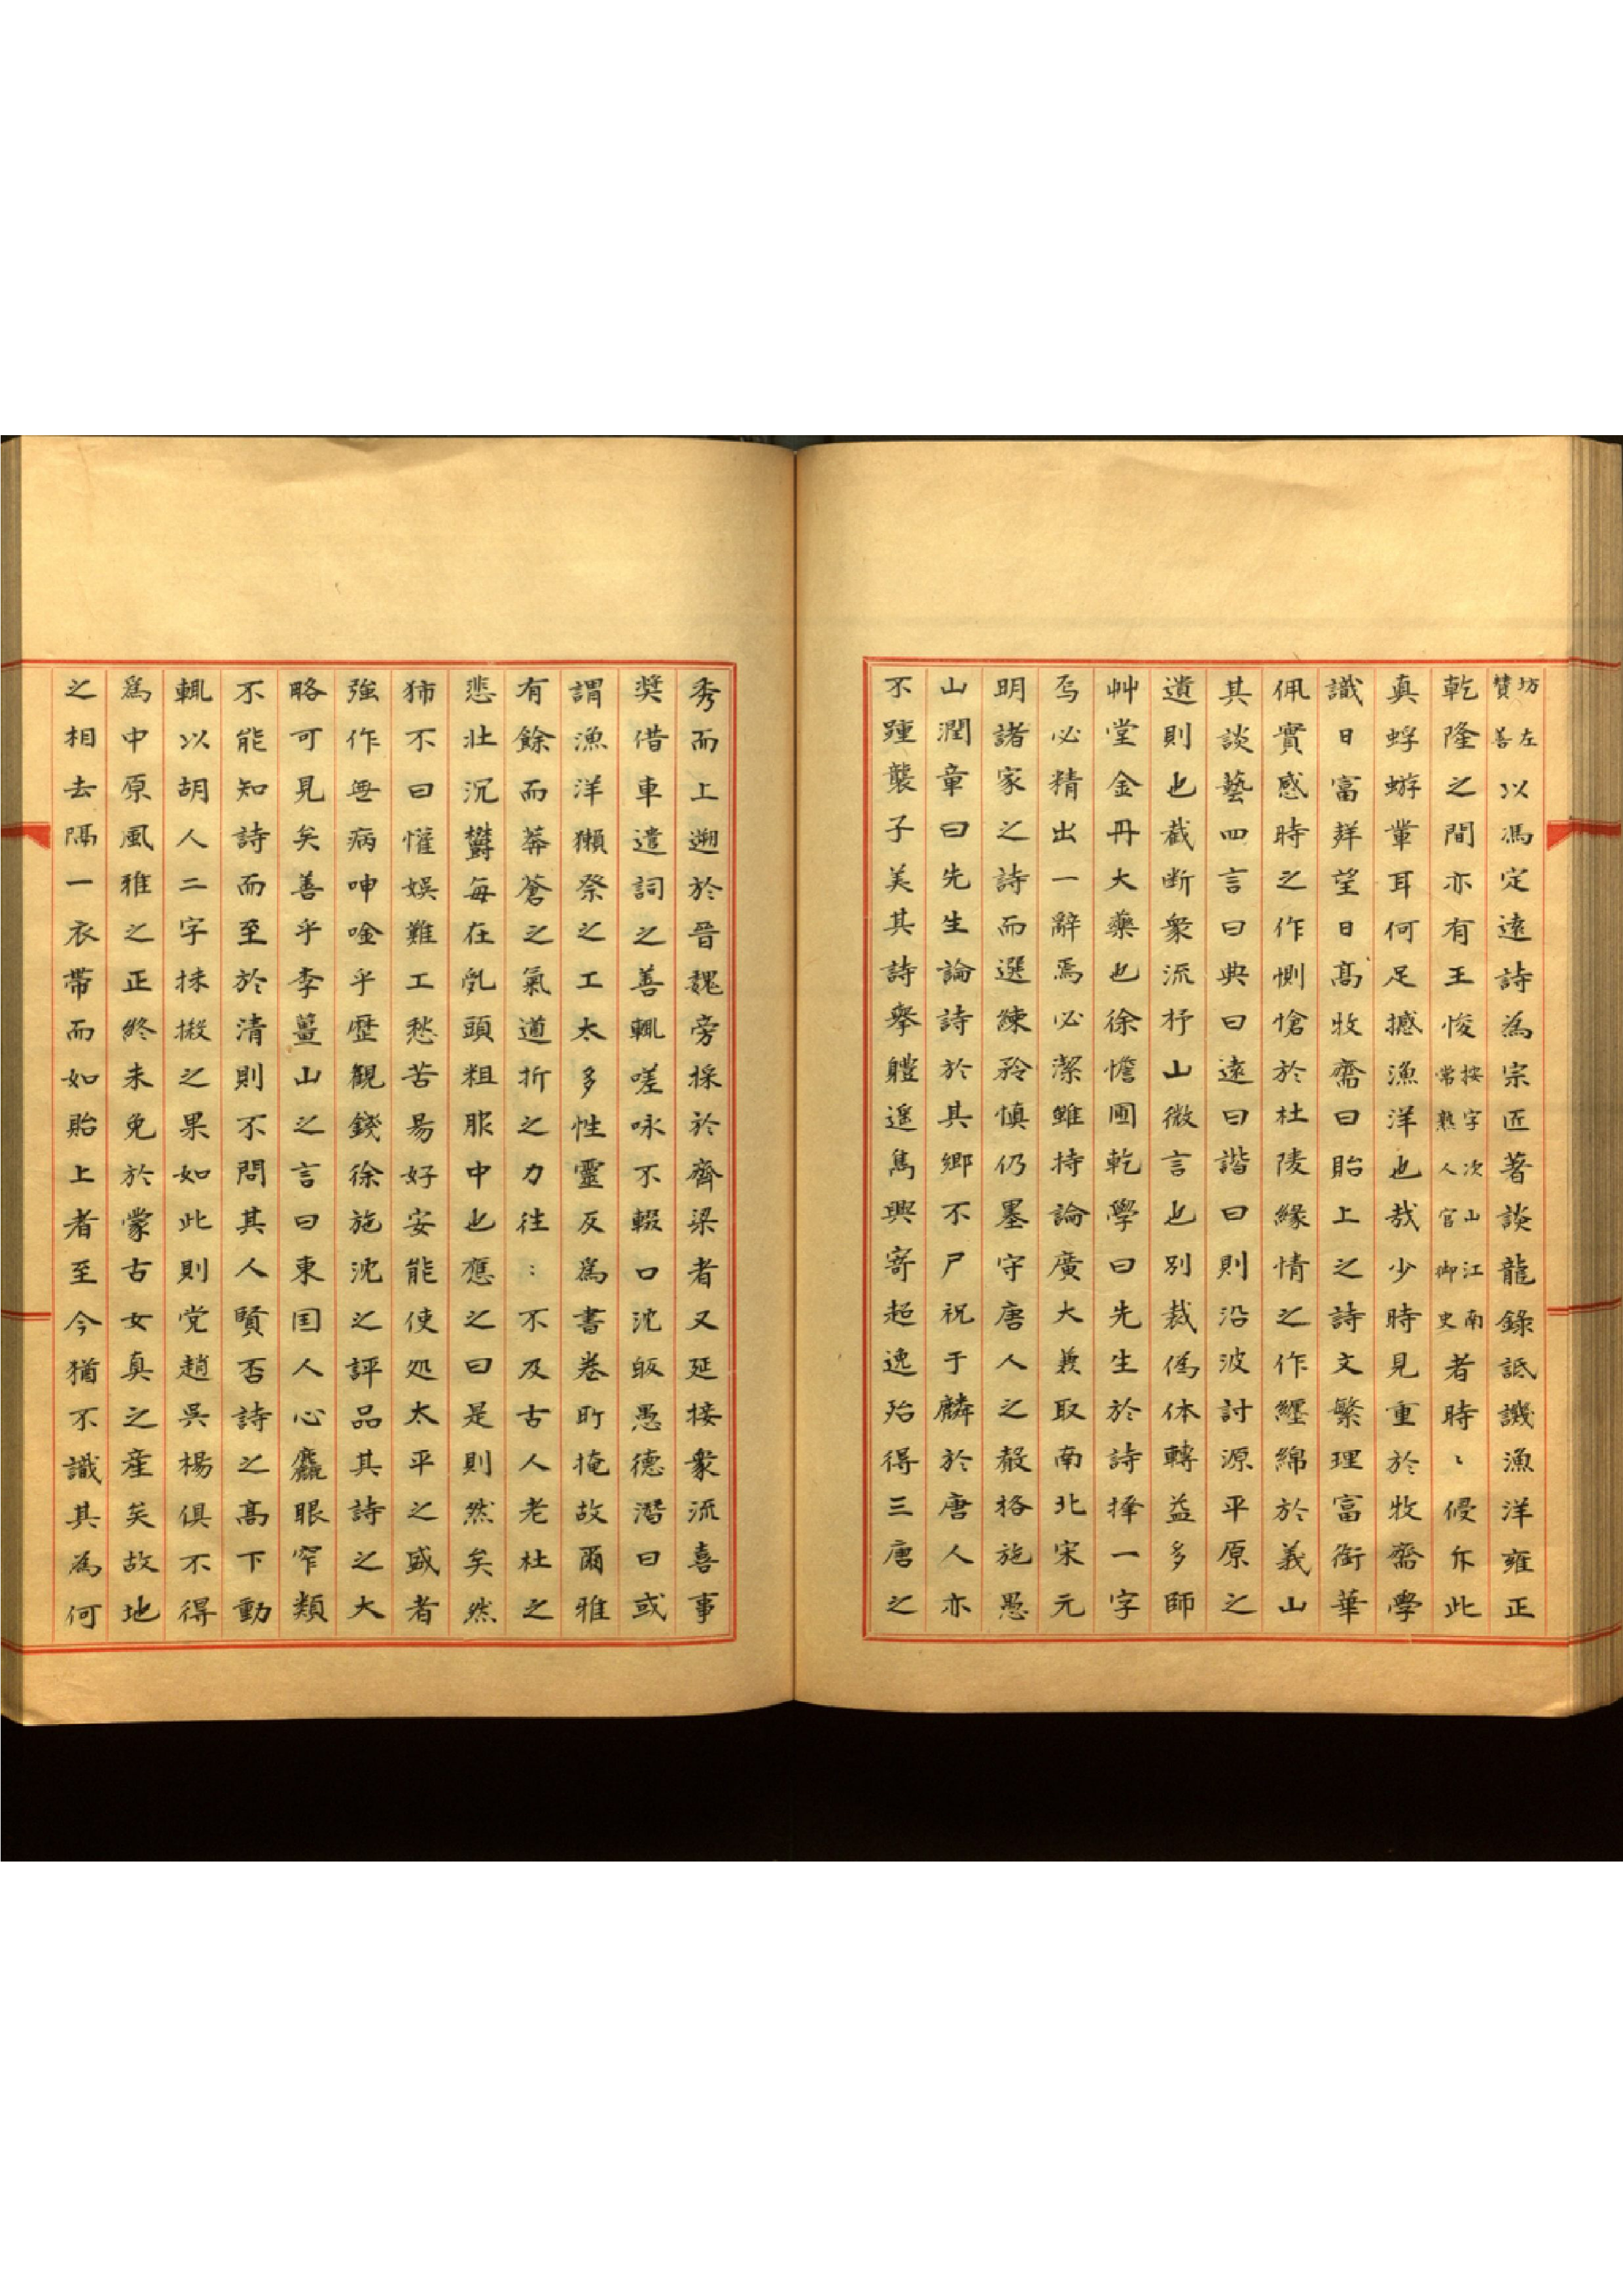 坊左贊善以馮定遠詩為宗匠著談龍錄詆譏漁洋雍正
乾隆之間亦有王悛按字次山江南常熟人官御史者時〻侵斥此
真蜉蝣輩耳何足撼漁洋也哉少時見重於牧齋學
識日富聲望日高牧齋曰貽上之詩文繁理富銜華
佩實感時之作惻愴於杜陵緣情之作纏綿於義山
其談藝四言曰典曰遠曰諧曰則沿波討源平原之
遺則也截断衆流杼山微言也別裁偽体轉益多師
艸堂金丹大藥也徐憺圃乾學曰先生於詩擇一字
焉必精出一辭焉必潔雖持論廣大兼取南北宋元
明諸家之詩而選練矜慎仍墨守唐人之聲格施愚
山潤章曰先生論詩於其鄉不尸祝于麟於唐人亦
不踵襲子美其詩舉體遥雋興寄超逸殆得三唐之
秀而上遡於晋魏旁採於齊梁者又延接衆流喜事
奨借車遣詞之善輒嗟咏不輟口沈皈愚德潜曰或
謂漁洋獺祭之工太多性靈反為書卷所掩故爾雅
有餘而莽蒼之氣遒折之力往〻不及古人老杜之
悲壮沉欝每在乱頭粗服中也應之曰是則然矣然
猶不曰懽娯難工愁苦昜好安能使処太平之盛者
強作無病呻唫乎歴觀錢徐施沈之評品其詩之大
略可見矣善乎李薑山之言曰東国人心麤眼窄類
不能知詩而至於清則不問其人賢否詩之高下動
輒以胡人二字抹摋之果如此則党趙吳楊俱不得
為中原風雅之正終未免於蒙古女真之産矣故地
之相去隔一衣帶而如貽上者至今猶不識其為何